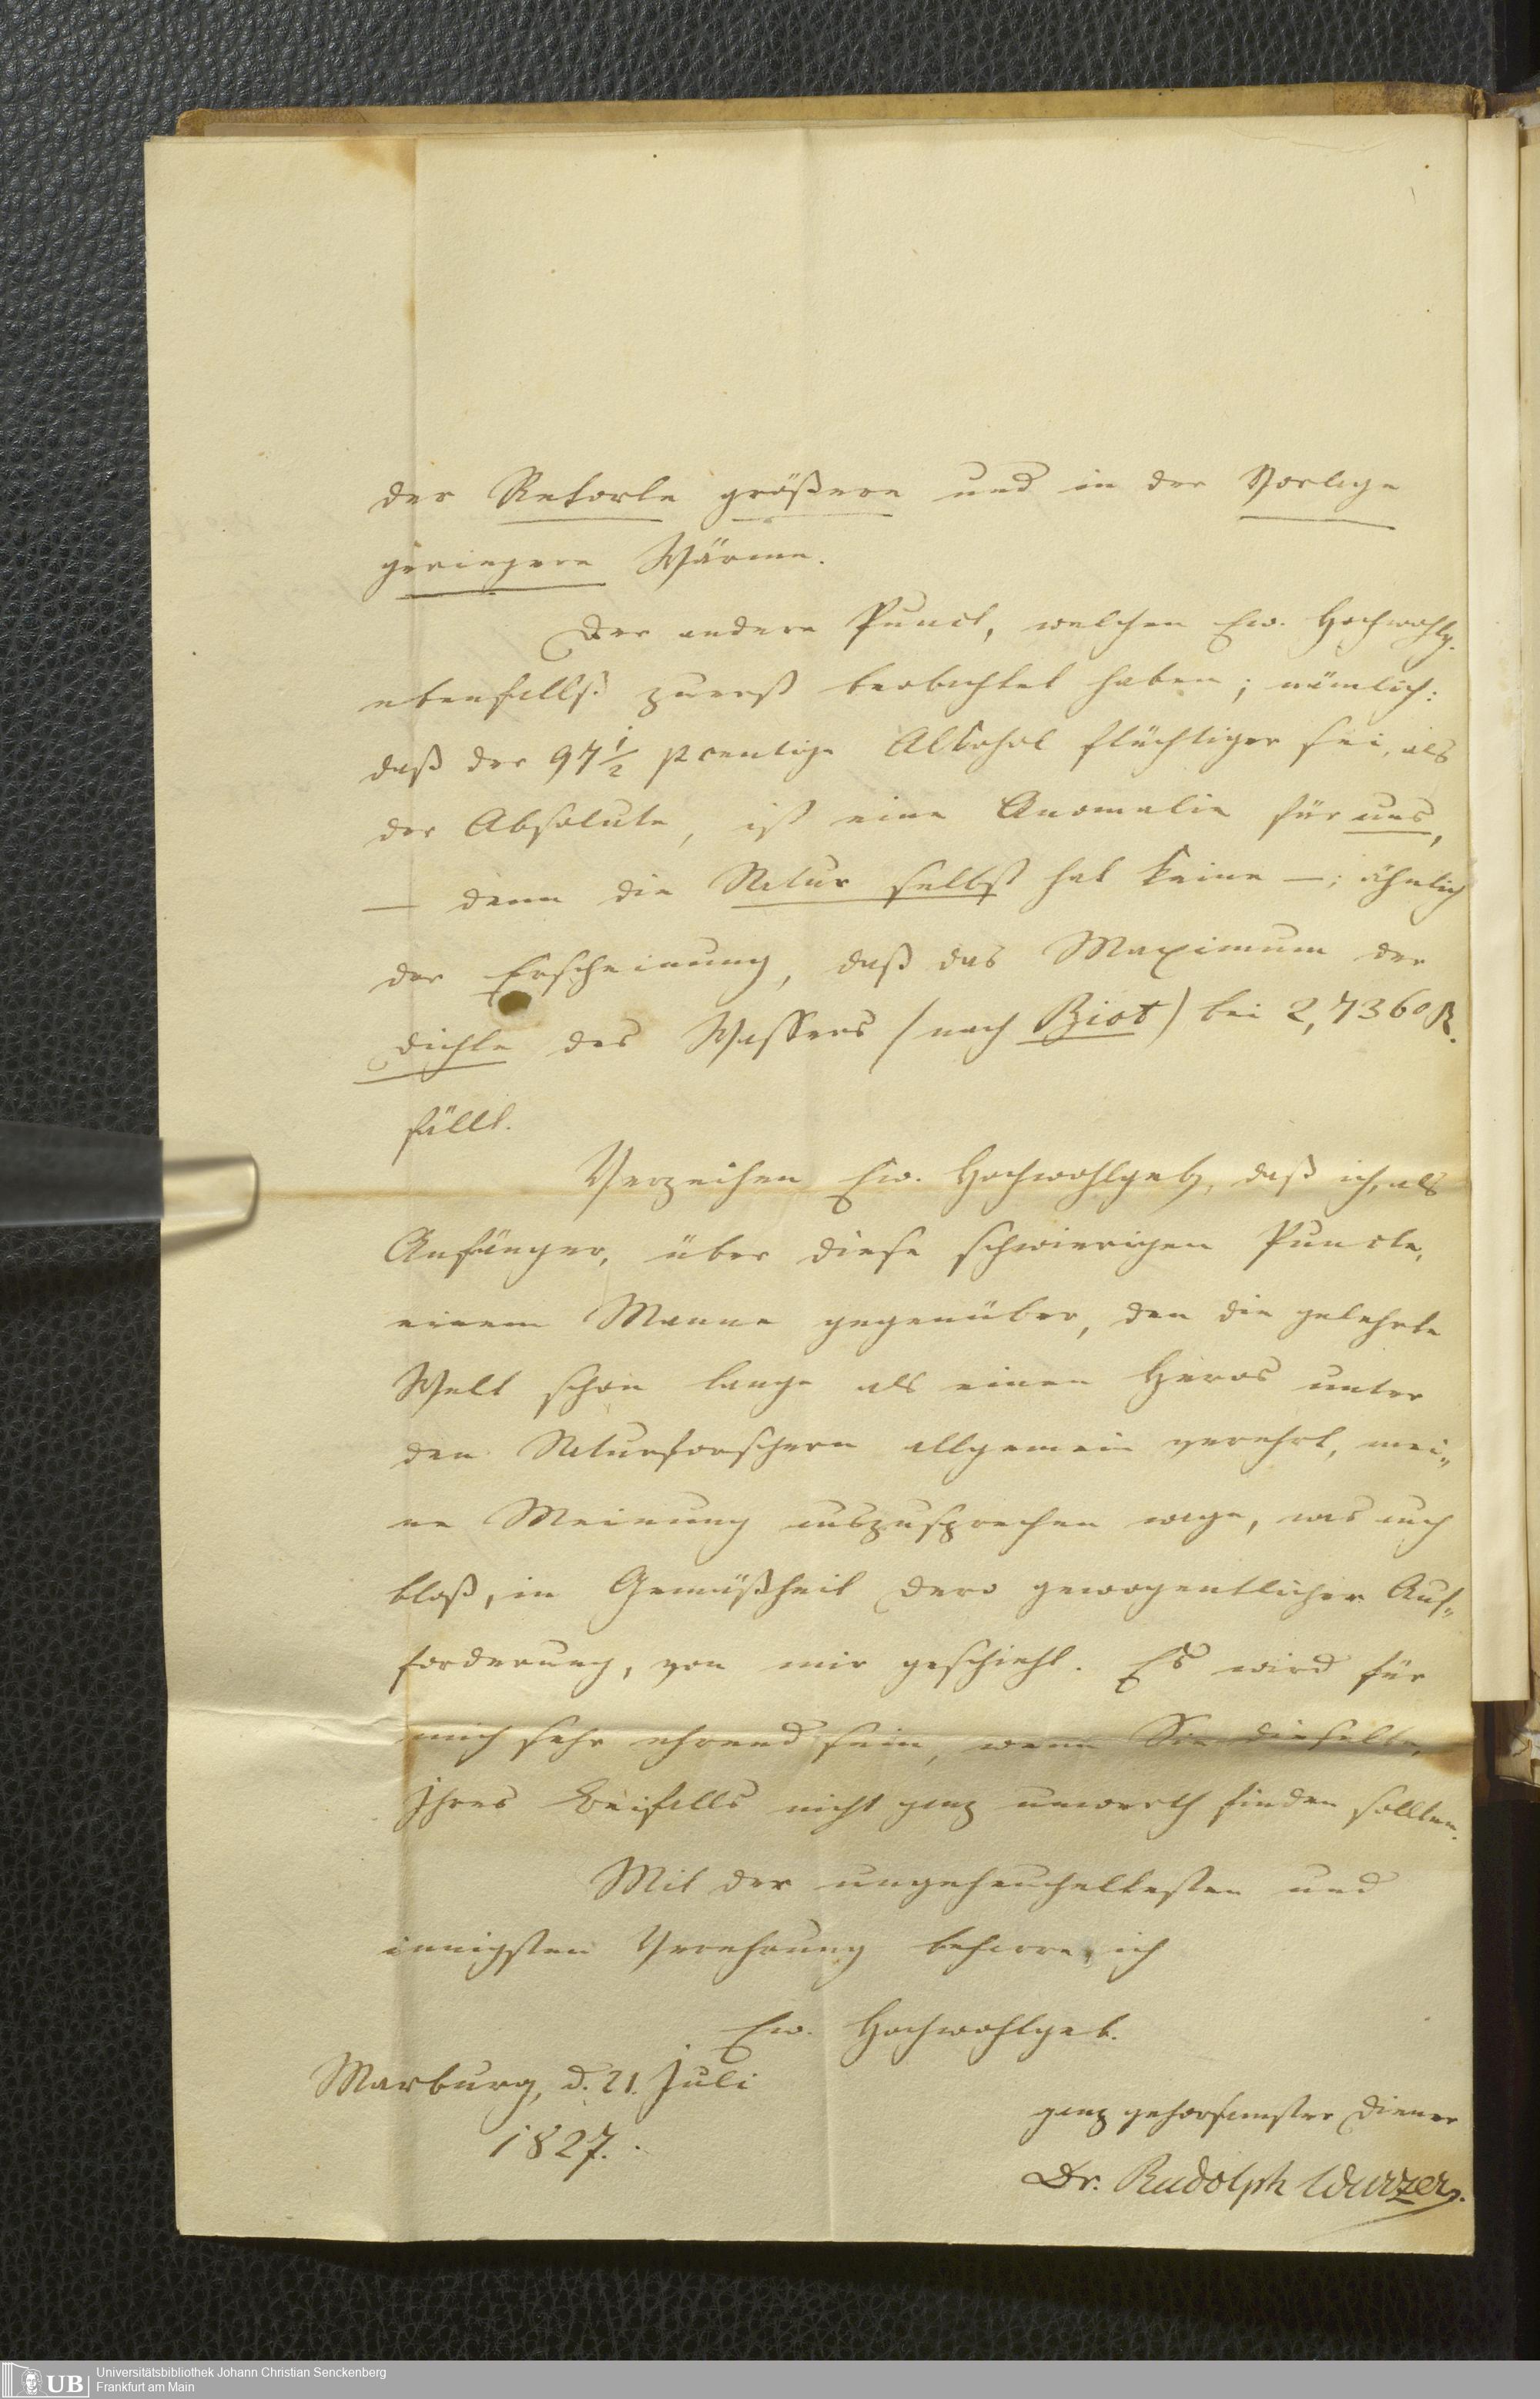 der Retorte größere und in der Vorlage
geringere Wärme.
Der andere Punct, welchen Ew. Hochwohlg.
ebenfalls zuerst beobachtet haben; nämlich:
daß der 97 1/2 pcentige Alkohol flüchtiger sei, als
der Absolute, ist eine Anomalie für uns,
— denn die Natur selbst hat keine —; ähnlich
der Erscheinung, daß das Maximum der
Dichte des Wassers (nach Biot) bei 2,736° R.
fällt.
Verzeihen Ew. Hochwohlgeb, daß ich, als
Anfänger, über diese schwierigen Puncte,
einem Manne gegenüber, den die gelehrte
Welt schon lange als einen Heros unter
den Naturforschern allgemein verehrt, mei„
ne Meinung auszusprechen wage, was auch
bloß, in Gemäßheit Dero gewogentlicher Auf„
forderung, von mir geschieht. Es wird für
mich sehr ehrend sein, wenn Sie dieselbe,
Ihres Beifalls nicht ganz unwerth finden sollten.
Mit der ungeheucheltesten und
innigsten Verehrung beharre, ich
Ew. Hochwohlgeb.
Marburg, d. 21. Juli
1827.
ganz gehorsamster Diener
Dr. Rudolph Wurzer.
UB
Universitätsbibliothek Johann Christian Senckenberg
Frankfurt am Main